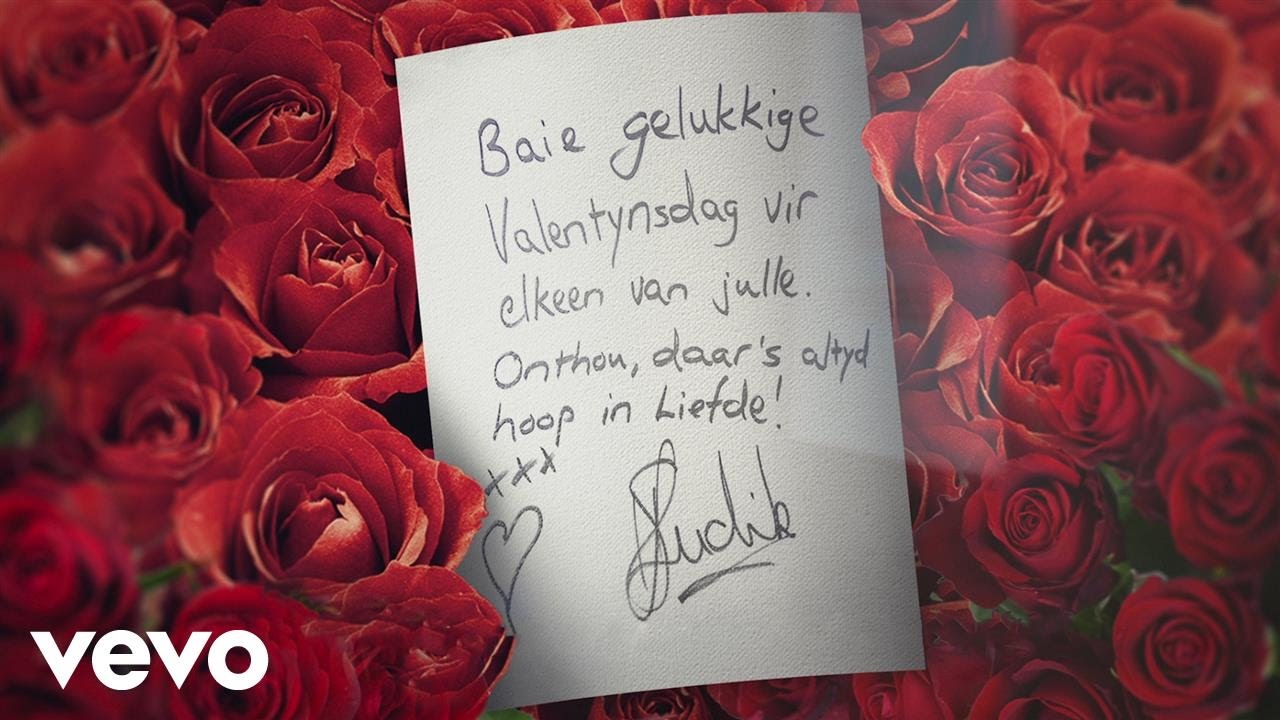 Baie gelukkige
Valentynsdag vir
elkeen van julle.
Onthou, daar's altyd
hoop in Liefde!
xxx
vevo